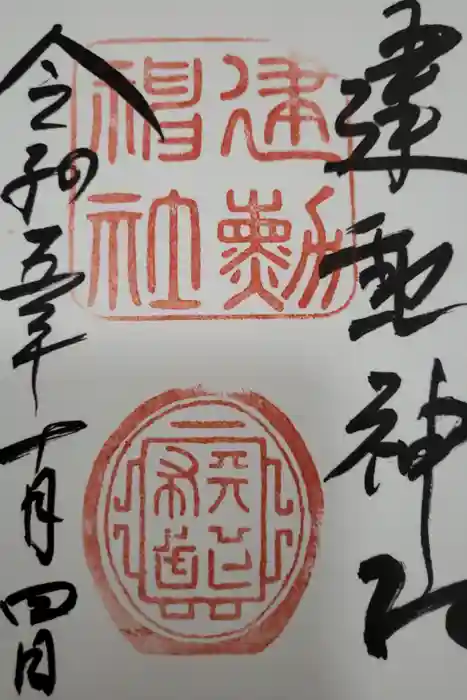 建勲神社
建勲
神社
天下
布武
令和五年十月四日